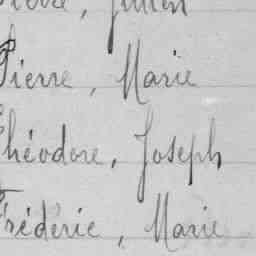 Pierre, Marie
Théodore, Joseph
Frédéric, Marie